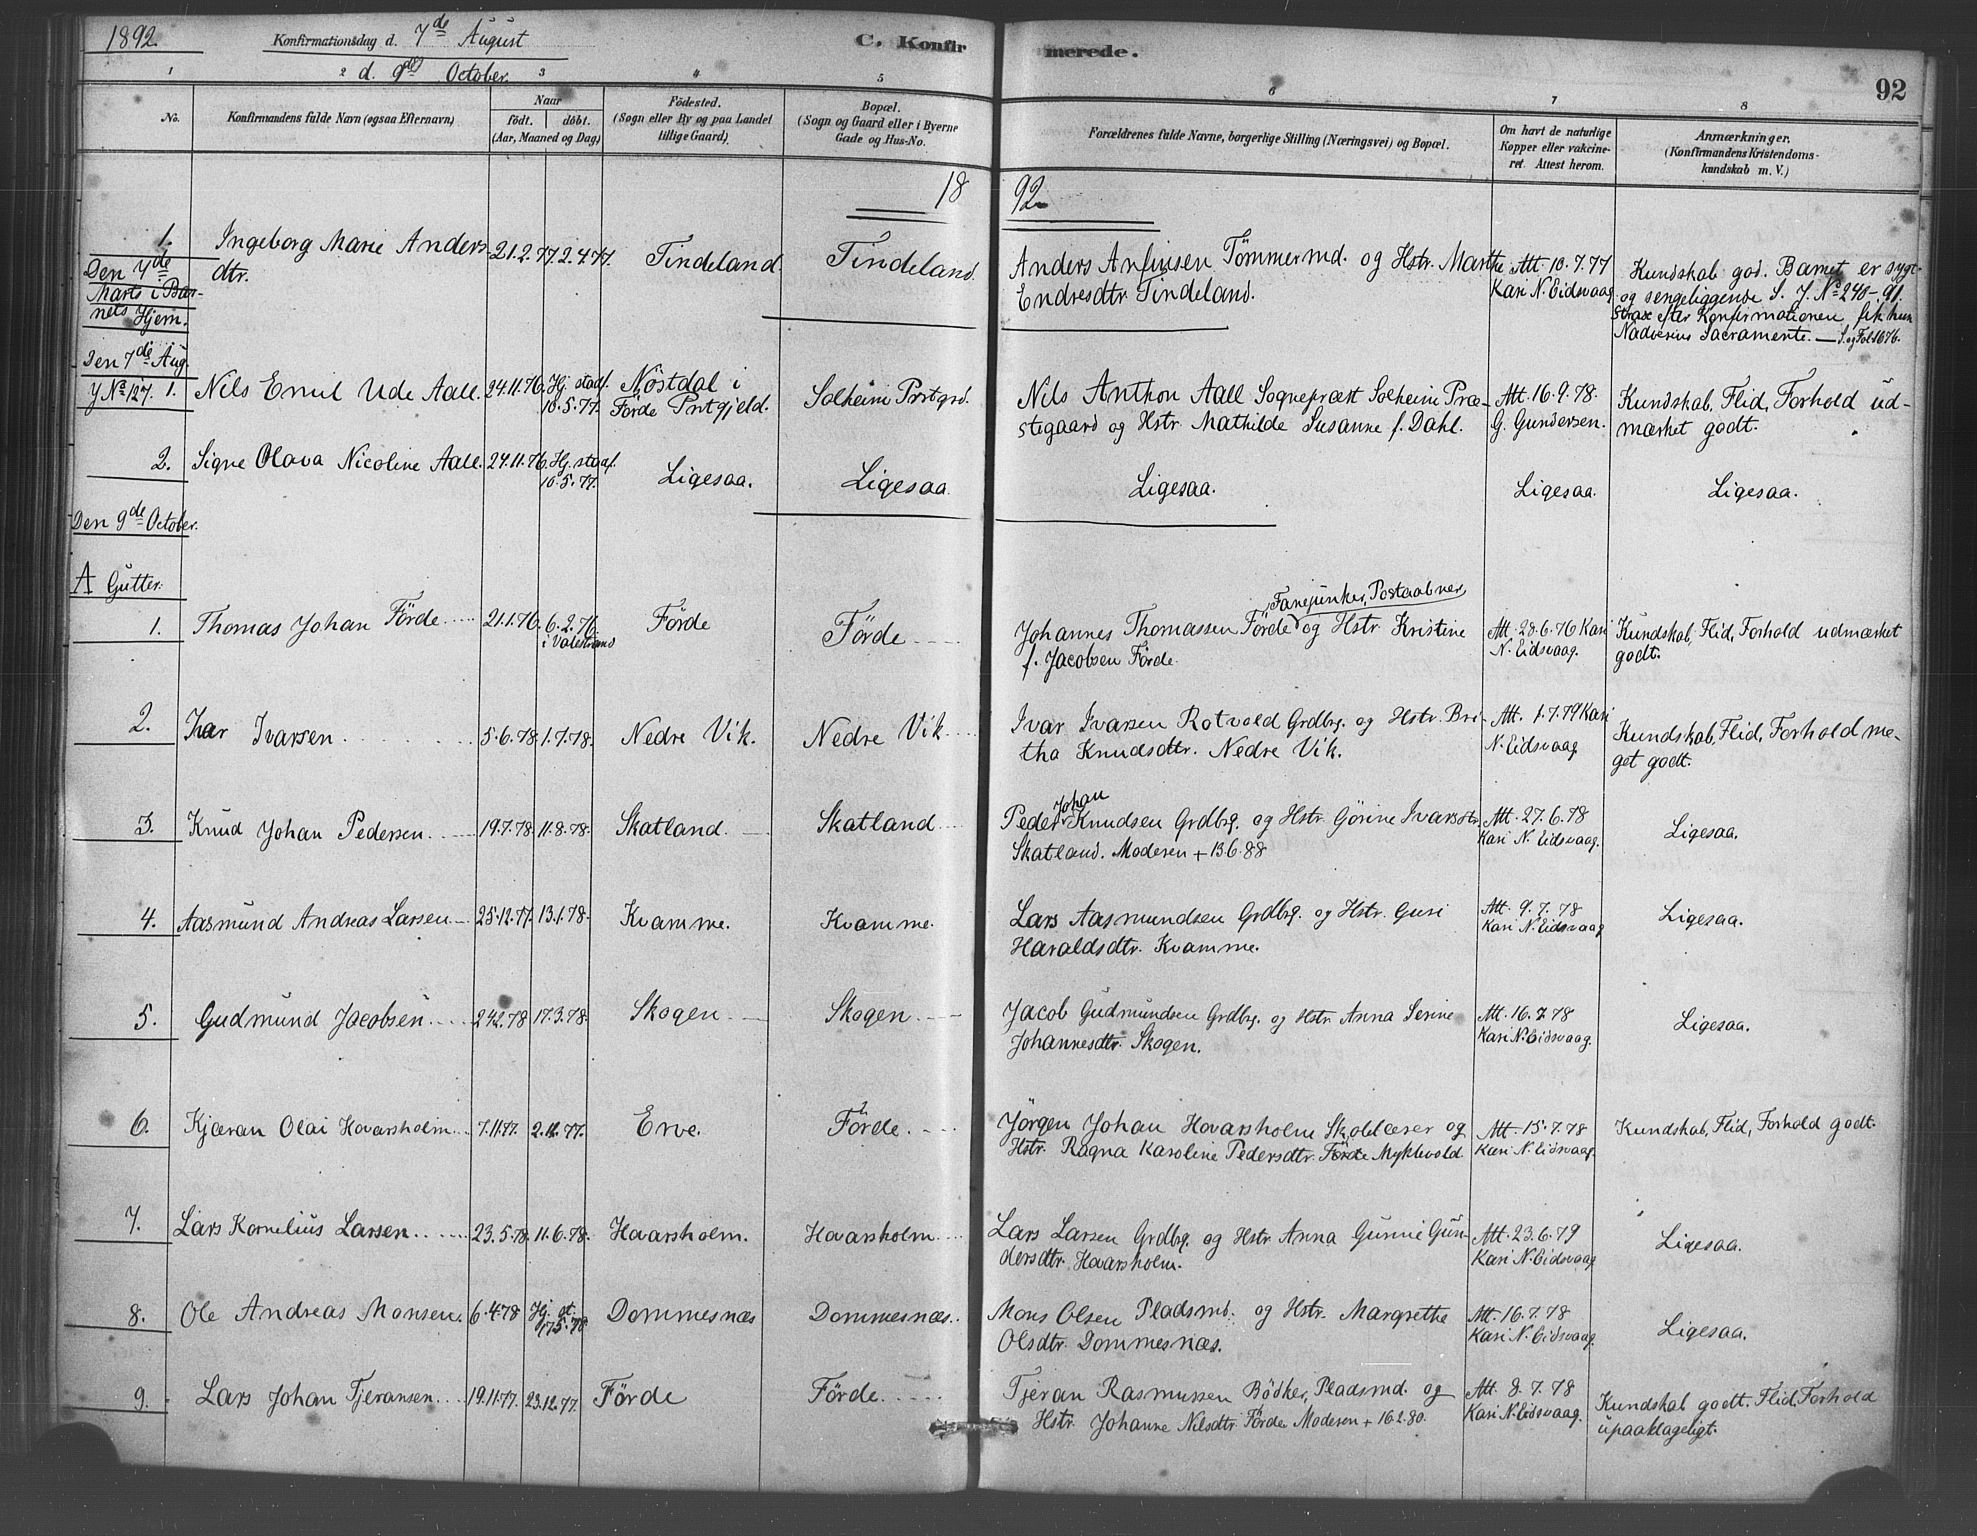 1892. Konfirmationsdag d. 7de August C. Konfirmerede.
d. 9de October. 92
1 2 3 4 5 6 7 8
No. Konfirmandens fulde Navn (ogsaa Efternavn) Naar født. døbt. (Aar, Maaned og Dag) Födested. (Sogn eller By og paa Landet tillige Gaard) Bopæl. (Sogn og Gaard eller i Byerne Gade og Hus-No. Forældrenes fulde Navne, borgerlige Stilling (Næringsvei) og Bopæl. Om havt de naturlige Kopper eller vakcineret. Attest herom. Anmærkninger. (Konfirmandens Kristendomskundskab m. V.)
1892
1. Ingeborg Marie Andersdtr. 21.2.77 2.4.77. Tindeland. Tindeland. Anders Anfinsen Tømmermd. og Hstr. Marthe Att. 10.7.77 Kundskab god. Barnet er sygt
Den 7de Marts i Barnets Hjem. Endresdtr. Tindeland. Kari N. Eidsvaag. og sengeliggende S. J. No 248-91.
strax efter Konfirmationen fik hun
Nadverens Sacramente. — S. og Fol 1676.
Den 7de Aug.
J No 127. 1. Nils Emil Ude Aall. 24.11.76. Hj. staaf. 10.5.77. Nøstdal i Førde Prstgjeld. Solheim Prstgrd. Nils Anthon Aall Sognepræst Solheim Præ- Att. 16.9.78. Kundskab, Flid, Forhold ud-
stegaard og Hstr. Mathilde Susanne f. Dahl. G. Gundersen. mærket godt.
2. Signe Olava Nicoline Aall. 24.11.76. Hj. staaf. 10.5.77. Ligesaa. Ligesaa Ligesaa. Ligesaa. Ligesaa.
Den 9de October.
A Gutter.
1. Thomas Johan Förde 21.1.76. 6.2.76. i Valestrand Förde Förde Johannes Thomassen Förde Fanejunker, Postaabner, og Hstr. Kristine Att. 28.6.76 Kari Kundskab, Flid, Forhold udmærket
f. Jacobsen Förde. N. Eidsvaag. godt.
2. Ivar Ivarsen 5.6.78. 1.7.78. Nedre Vik. Nedre Vik Ivar Ivarsen Rotvold Grdbrg. og Hstr. Bri- Att. 1.7.79 Kari Kundskab, Flid, Forhold me-
tha Knudsdtr. Nedre Vik. N. Eidsvaag. get godt.
3. Knud Johan Pedersen. 19.7.78. 11.8.78. Skatland. Skatland Peder Johan Knudsen Grdbrg. og Hstr. Görine Ivarsdtr. Att. 27.6.78 Ligesaa.
Skatland. Moderen + 13.6.88 Kari N. Eidsvaag.
4. Aasmund Andreas Larsen 25.12.77. 13.1.78. Kvamme. Kvamme. Lars Aasmundsen Grdbrg. og Hstr. Guri Att. 9.7.78 Ligesaa.
Haraldsdtr. Kvamme. Kari N. Eidsvaag
5. Gudmund Jacobsen 24.2.78 17.3.78. Skogen Skogen Jacob Gudmundsen Grdbrg. og Hstr. Anna Serine Att. 16.7.78 Ligesaa.
Johannesdtr. Skogen. Kari N. Eidsvaag.
6. Kjæran Olai Hovarsholm 7.11.77. 2.12.77. Erve. Förde. Jörgen Johan Hovarsholm Skolelærer og Att. 15.7.78 Kundskab, Flid, Forhold godt.
Hstr. Ragna Karoline Pedersdtr. Förde Myklevold. Kari N. Eidsvaag.
7. Lars Kornelius Larsen 23.5.78. 11.6.78. Hovarsholm. Hovarsholm Lars Larsen Grdbrg. og Hstr. Anna Gurine Gun- Att. 23.6.79 Ligesaa.
dersdtr. Hovarsholm. Kari N. Eidsvaag
8. Ole Andreas Monsen. 6.4.78 Hj. dt. 17.5.78 Dommesnæs Dommesnæs. Mons Olsen Pladsmd. og Hstr. Margrethe Att. 16.7.78 Ligesaa.
Olsdtr. Dommesnæs. Kari N. Eidsvaag.
9. Lars Johan Tjeransen 19.11.77. 23.12.77. Förde Förde. Tjeran Rasmussen Bödker, Pladsmd. og Att. 8.7.78 Kundskab godt. Flid, Forhold
Hstr. Johanne Nilsdtr. Förde Moderen + 16.2.80. Kari N. Eidsvaag. upaaklageligt.